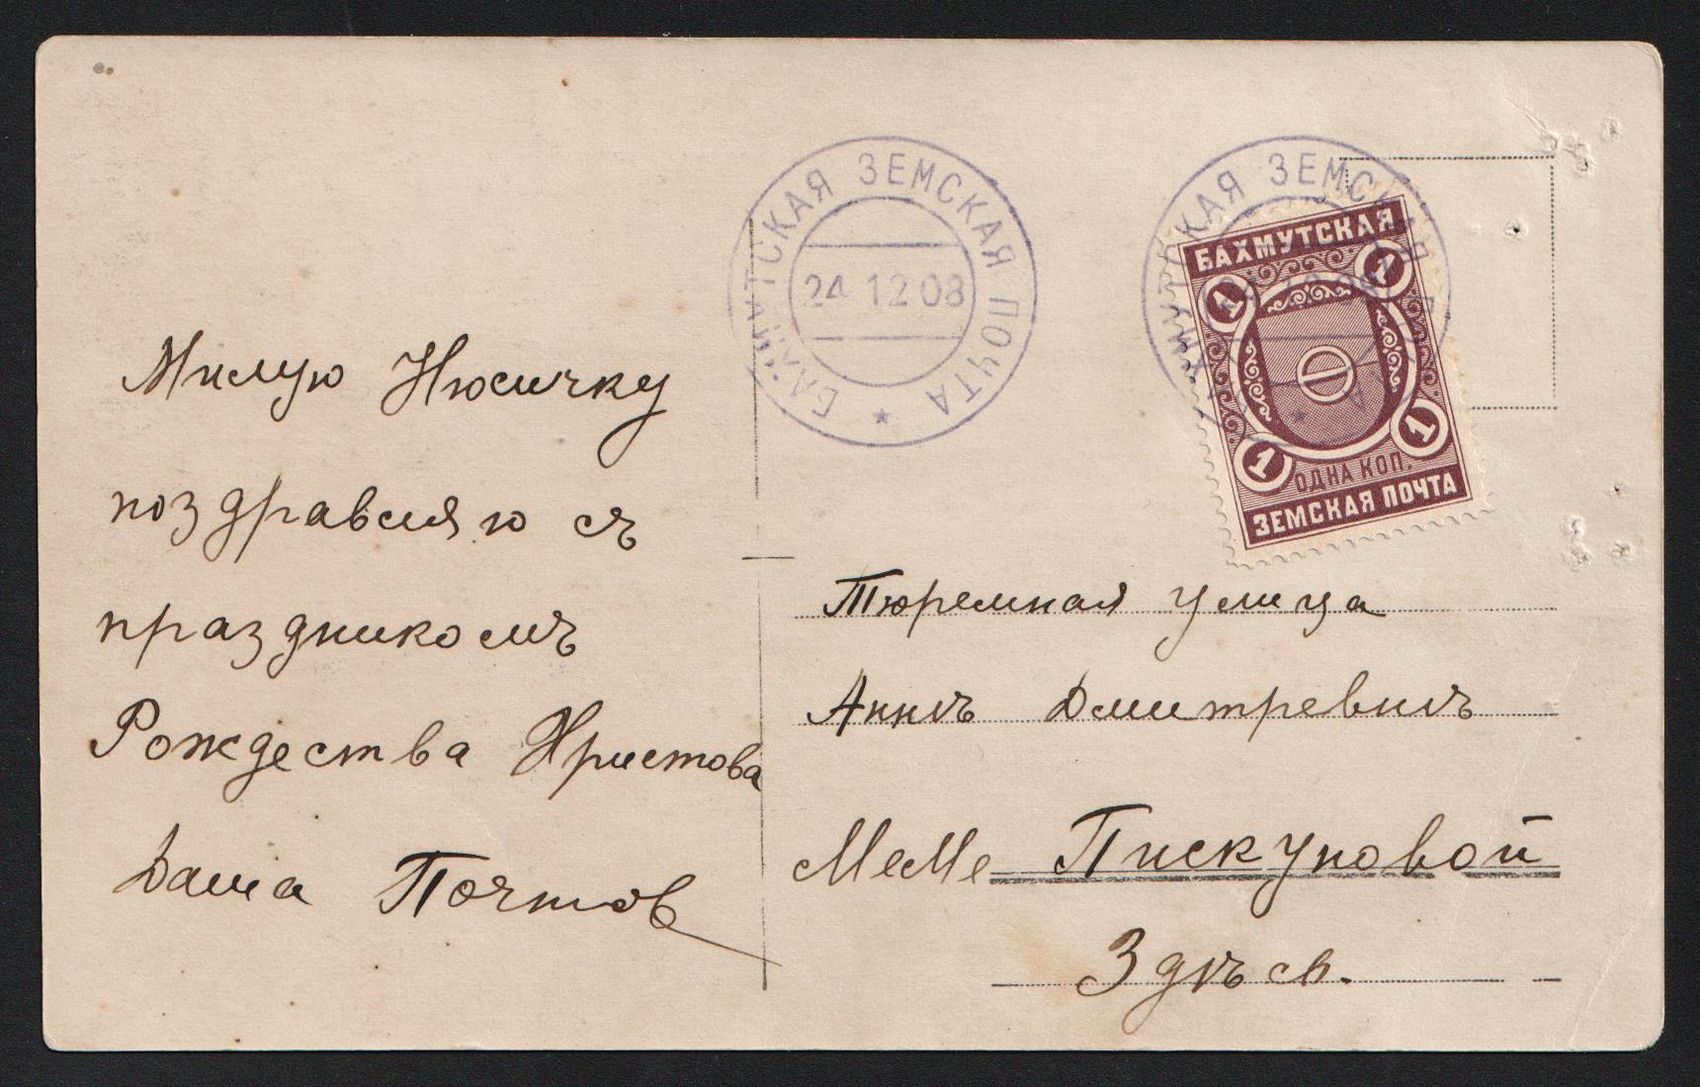 БАХМУТСКАЯ ЗЕМСКАЯ ПОЧТА
24 12 08
БАХМУТСКАЯ ЗЕМСКАЯ ПОЧТА
БАХМУТСКАЯ
1 1
1 1
ОДНА КОП.
ЗЕМСКАЯ ПОЧТА
Милую Нюсичку
поздравляю съ
праздникомъ
Рождества Христова
Даша
Тюремная улица
Аннѣ Дмитревнѣ
МеМе Пискуновой
Здѣсь.